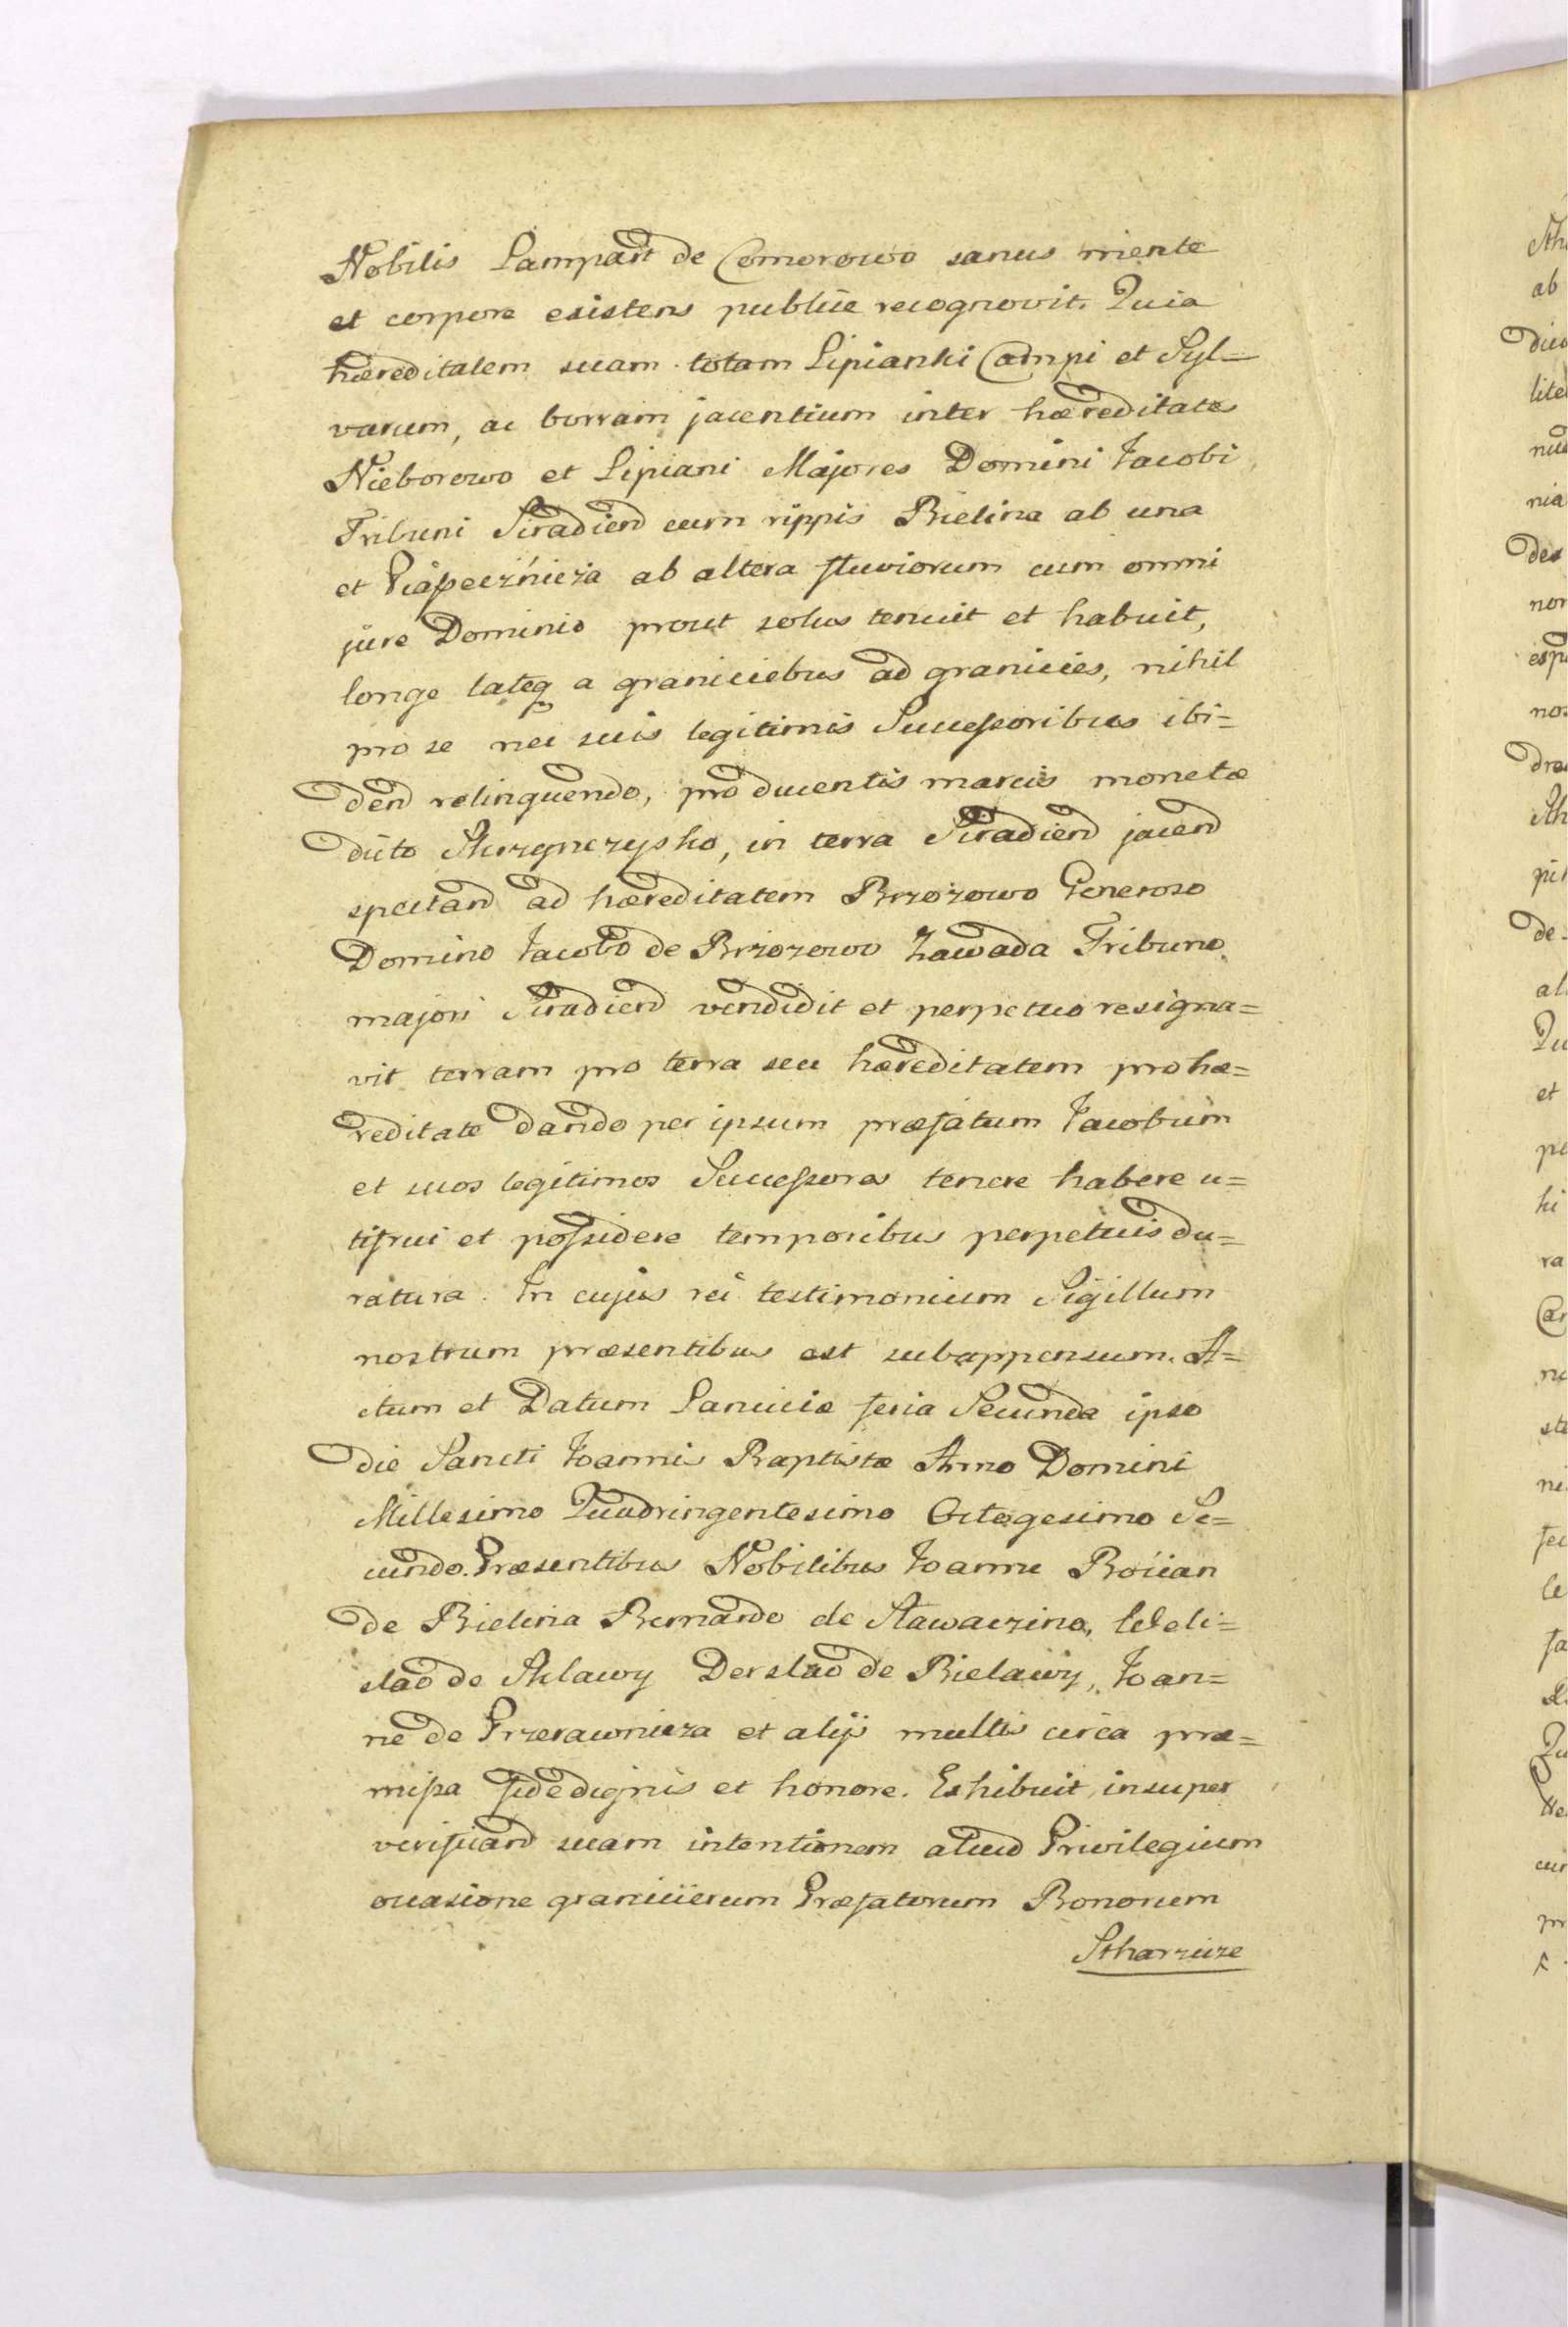 Nobilis Lampart de Comorowo sanus mente
et corpore existens publice recognovit. Quia
hæreditatem suam totam Lipianki Campi et Syl=
varum, ac borram jacentium inter hæreditates
Nieborowo et Lipiani Majores Domini Jacobi
Tribuni Siradien cum rippis Bielina ab una
et ab altera fluviorum cum omni
jure Dominio prout solus tenuit et habuit,
longe lateq a graniciebus ad granicies, nihil
pro se nec suis legitimis Successoribus ibi=
dem relinquendo, pro ducentis marcis monetæ
dicto in terra Siradien jacen
spectan ad hæreditatem Brzozowo Generoso
Domino Jacobo de Brzozowo Zawada Tribuno
majori Siradien vendidit et perpetuo resigna=
vit terram pro terra seu hæreditatem pro hæ=
reditate dando per ipsum præfatum Jacobum
et suos legitimos Successores tenere habere u=
tifrui et possidere temporibus perpetuis du=
ratura. In cujus rei testimonium Sigillum
nostrum præsentibus est subappensum. A=
ctum et Datum Lanciciæ feria Secunda ipso
die Sancti Joannis Baptistæ Anno Domini
Millesimo Quadringentesimo Octogesimo Se=
cundo. Præsentibus Nobilibus Joanne Boiian
de Bielina Bernardo de Stawaczino, Weli=
slao de Sklawy Derslao de Bielawy, Joan=
ne de Przerawnicza et alijs multis circa præ=
missa fide dignis et honore. Exhibuit insuper
verifican suam intentionem aliud Privilegium
occasione graniciierum Præfatorum Bonorum
Stharzicze